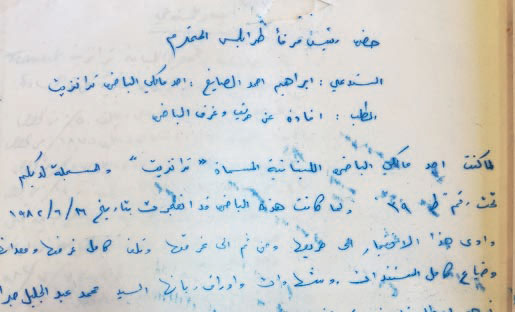 حضرة رئيس مرفأ طرابلس المحترم
المستدعي : ابراهيم احمد الصايغ : احد مالكي الباخرة ترانزيت
الطلب : افادة عن حريق وغرق الباخرة
لما كنت احد مالكي الباخرة اللبنانية المسماة " ترانزيت " والمسجلة لديكم
تحت رقم ط ٣٩ ولما كانت هذه الباخرة قد انفجرت بتاريخ ١٩٨٢/٦/
وادى هذا الانفجار الى حريقها ومن ثم الى غرقها وتلف كامل غرفها ومعداتها
وضياع كامل المستندات واوراق ربانها السيد محمد عبد الجليل